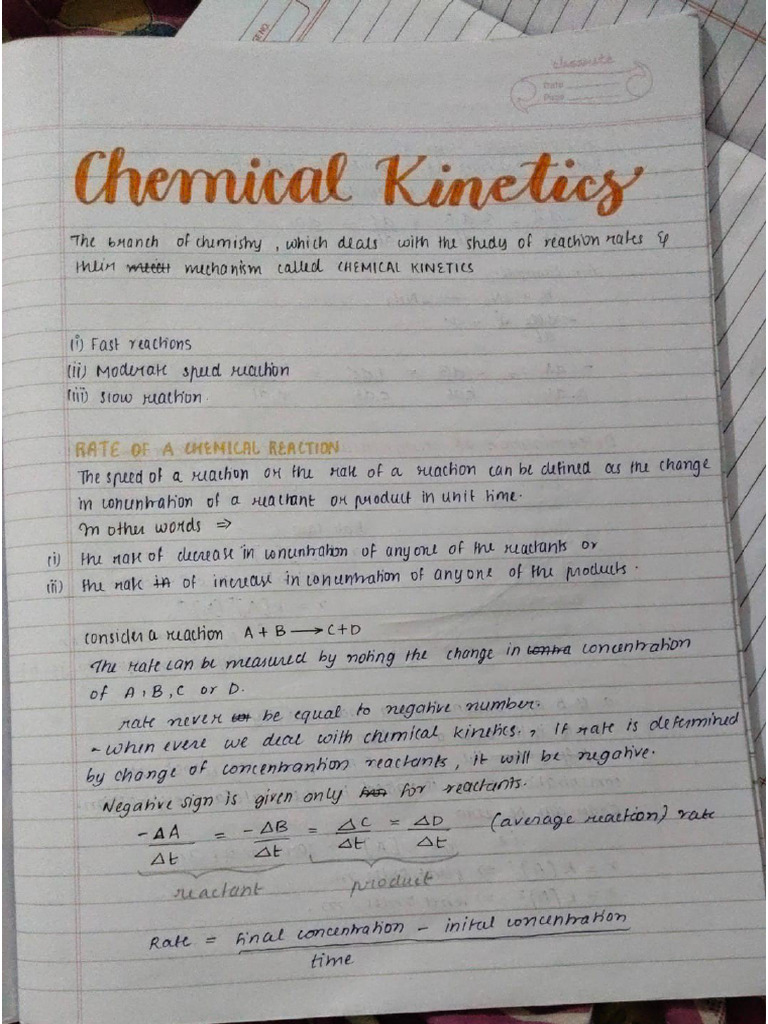 classmate
Date
Page
Chemical Kinetics
The branch of chemistry, which deals with the study of reaction rates &
their mechanism called CHEMICAL KINETICS
(i) Fast reactions
(ii) Moderate speed reaction
(iii) Slow reaction.
RATE OF A CHEMICAL REACTION
The speed of a reaction or the rate of a reaction can be defined as the change
in concentration of a reactant or product in unit time.
In other words ⇒
(i) the rate of decrease in concentration of anyone of the reactants or
(ii) the rate in of increase in concentration of anyone of the products.
consider a reaction A + B ⟶ C+D
The rate can be measured by noting the change in contra concentration
of A, B, C or D.
rate never be equal to negative number.
- when evere we deal with chemical kinetics., If rate is determined
by change of concentranhion reactants, it will be negative.
Negative sign is given only for reactants.
-ΔA/Δt = -ΔB/Δt = ΔC/Δt = ΔD/Δt (average reaction) rate
reactant product
Rate = final concentration - inital concentration
time